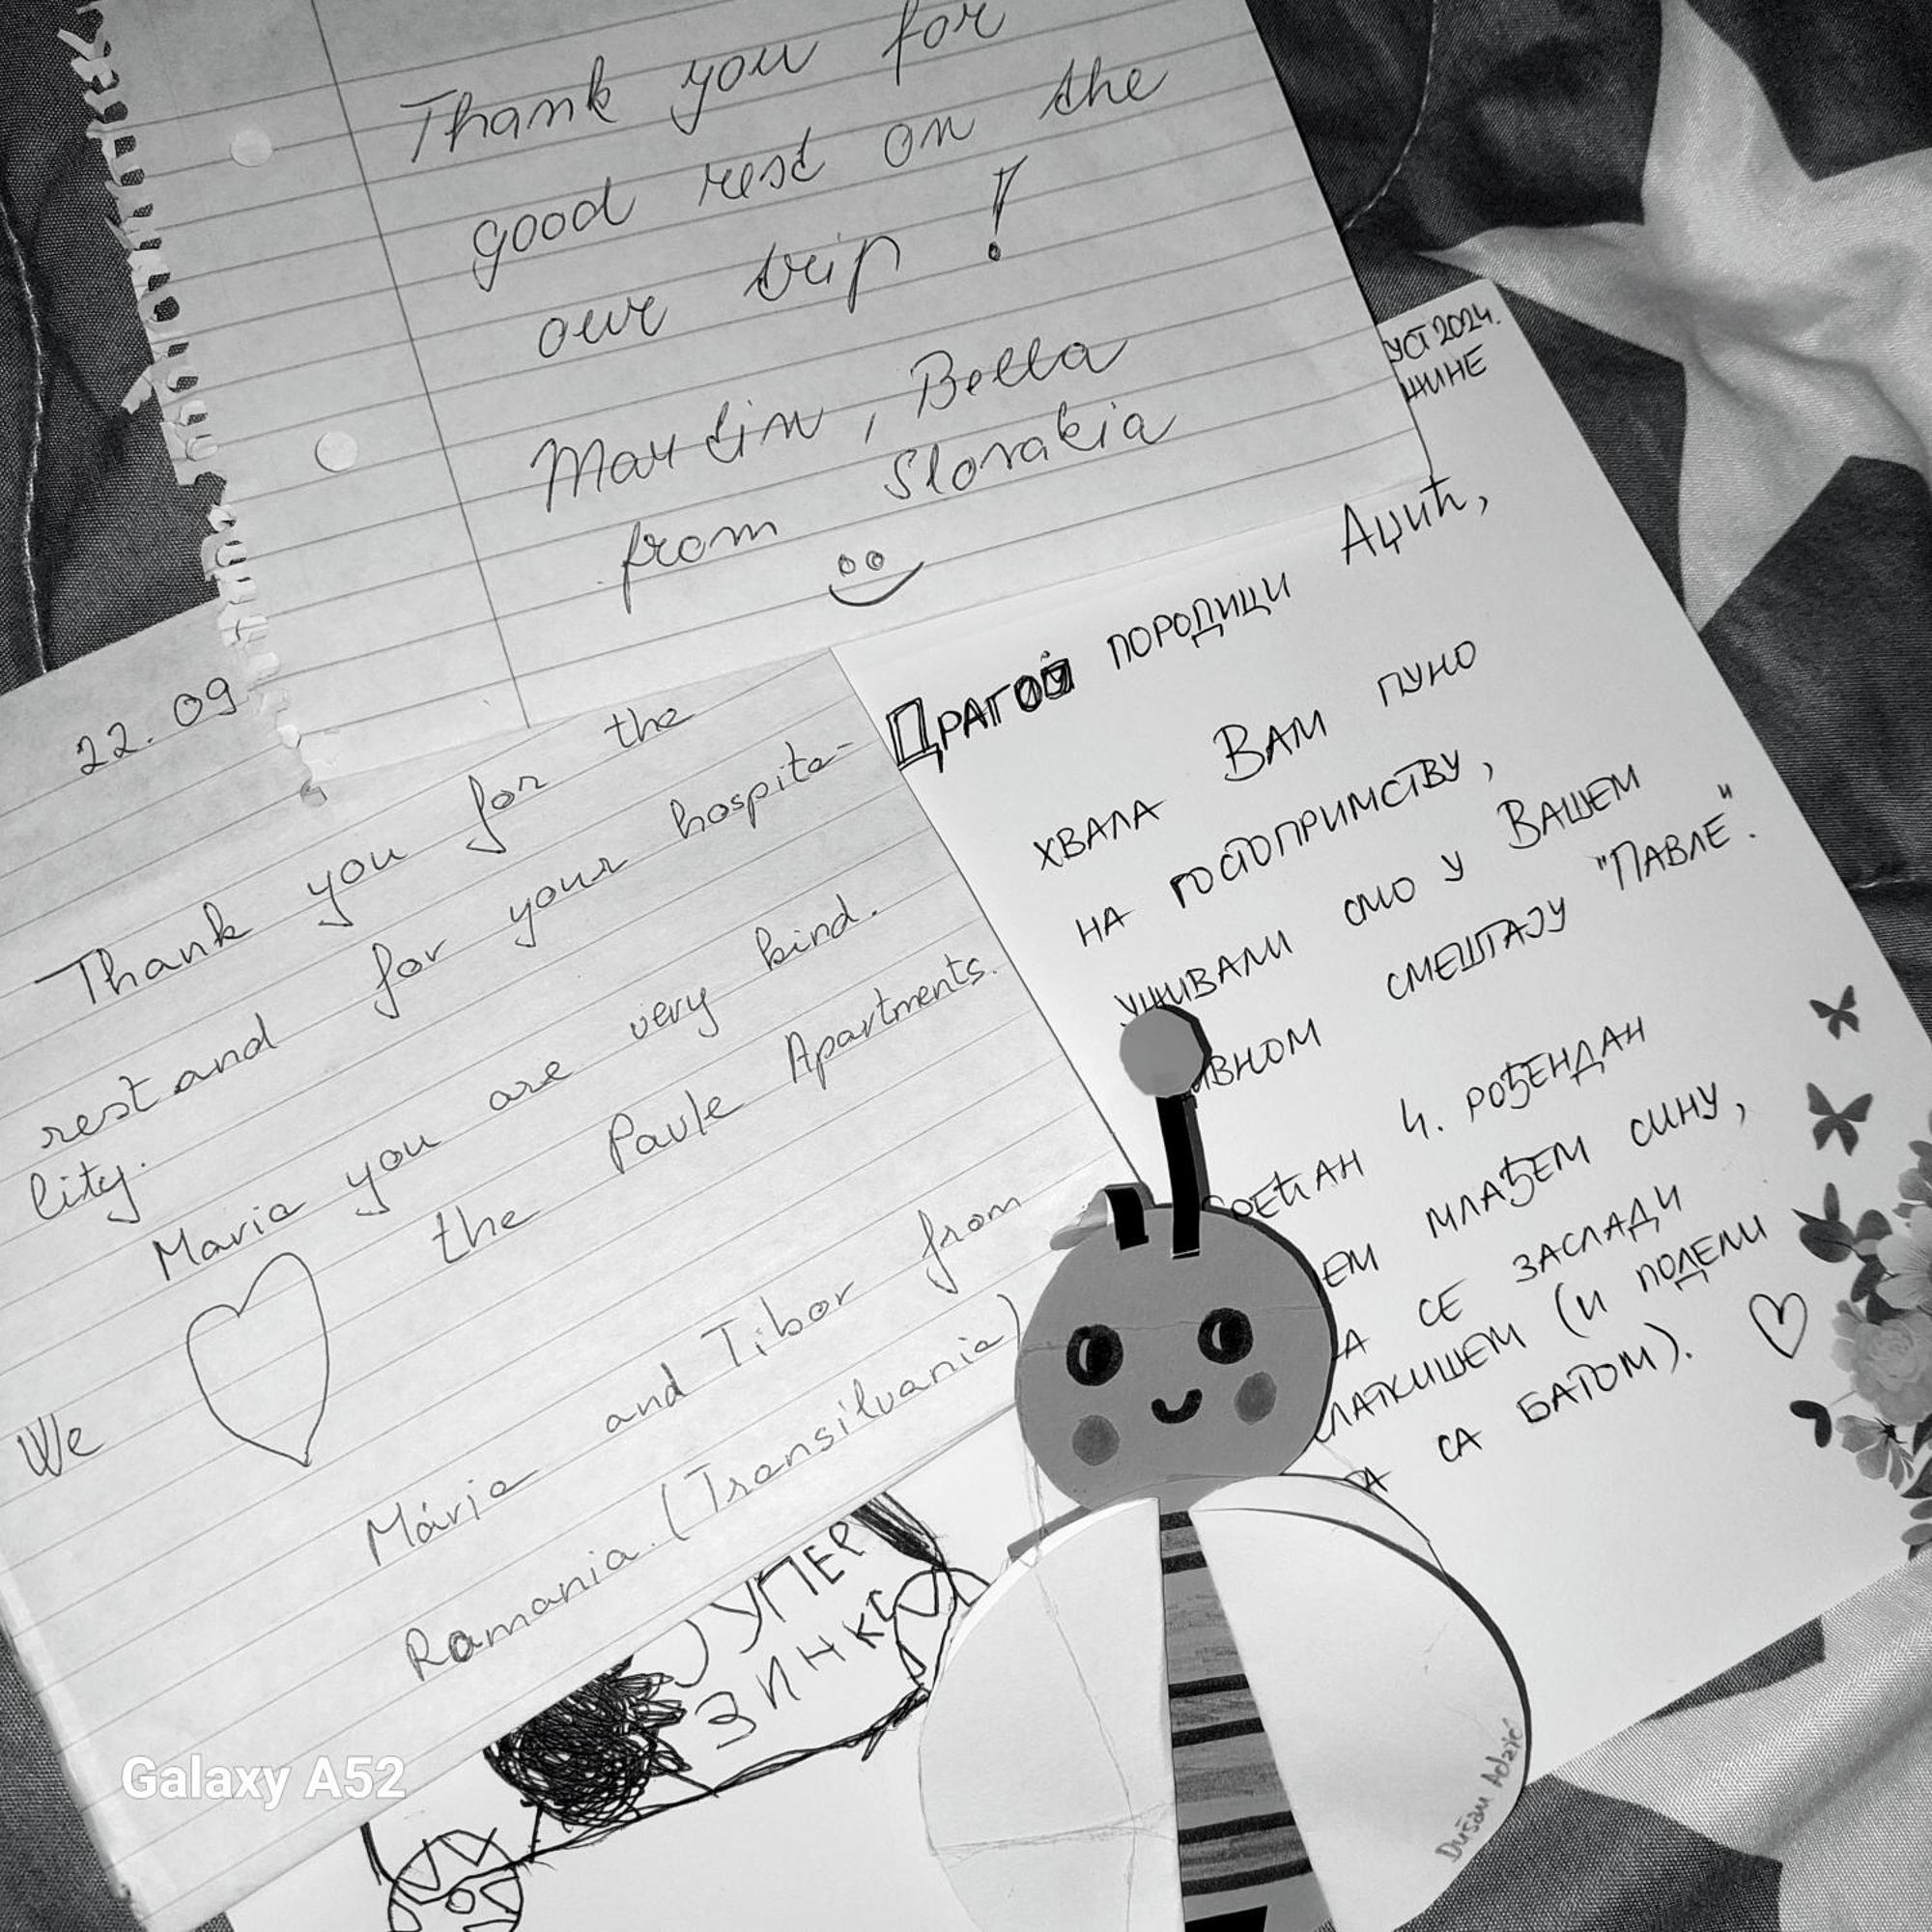 Thank you for
good rest on the
our trip!
Martin, Bella
from Slovakia
22.09
Thank you for the
rest and for your hospita-
lity.
Maria you are very kind.
We the Pavle Apartments.
Mária and Tibor from
Romania. (Transilvania)
УСТ 2024.
ЖИНЕ
Драгој породици Аџић,
ХВАЛА ВАМ ПУНО
НА ГОСТОПРИМСТВУ,
УЖИВАЛИ СМО У ВАШЕМ
ИВНОМ СМЕШТАЈУ "ПАВЛЕ".
СРЕЋАН 4. РОЂЕНДАН
ЕМ МЛАЂЕМ СИНУ,
А СЕ ЗАСЛАДИ
СЛАТКИШЕМ (И ПОДЕЛИ
ГА СА БАТОМ).
УПЕР
ЗИНКС
Dušan Adžić
Galaxy A52